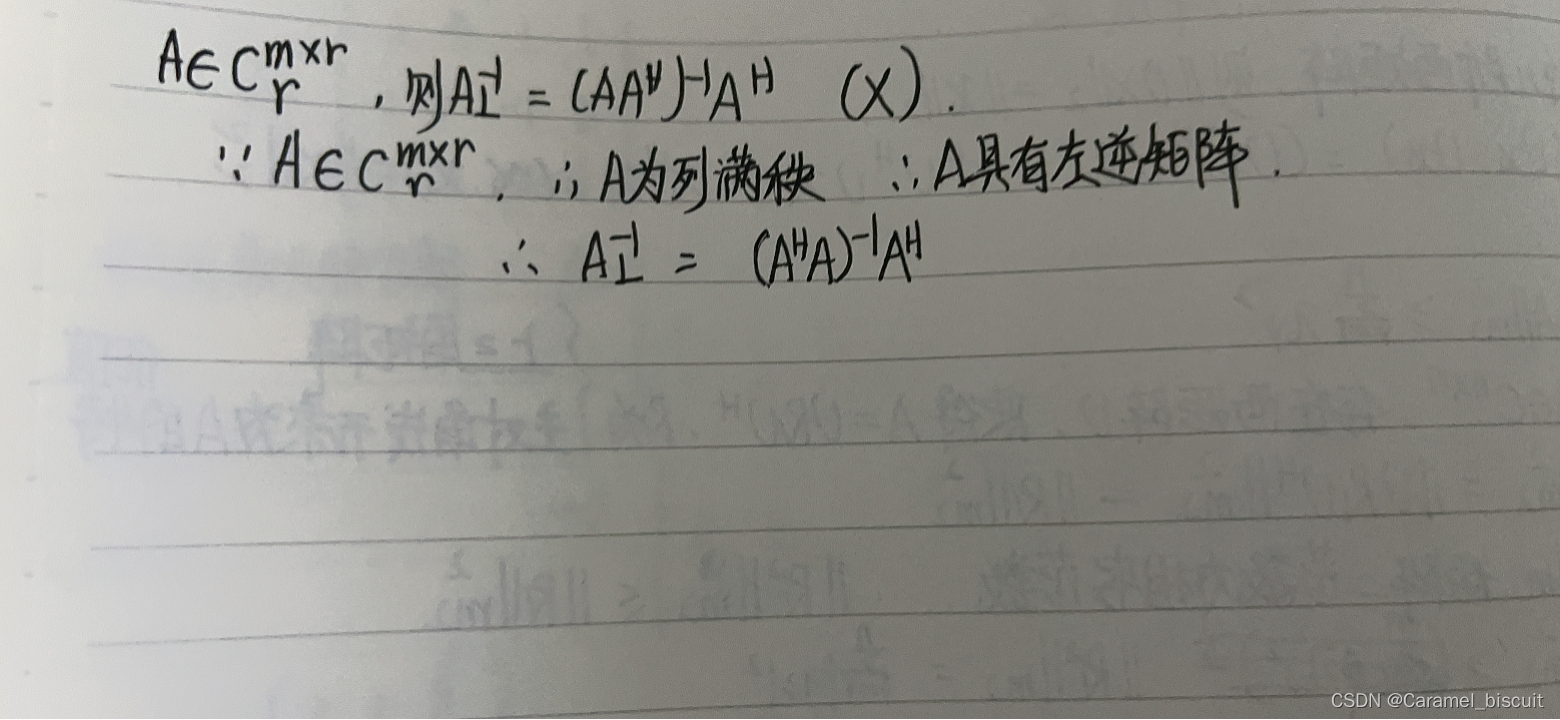 A∈C_r^{m×r}, 则A_L^{-1} = (AA^H)^{-1}A^H (X).
∵ A∈C_r^{m×r}. ∴ A为列满秩 ∴ A具有左逆矩阵.
∴ A_L^{-1} = (A^HA)^{-1}A^H
CSDN @Caramel_biscuit